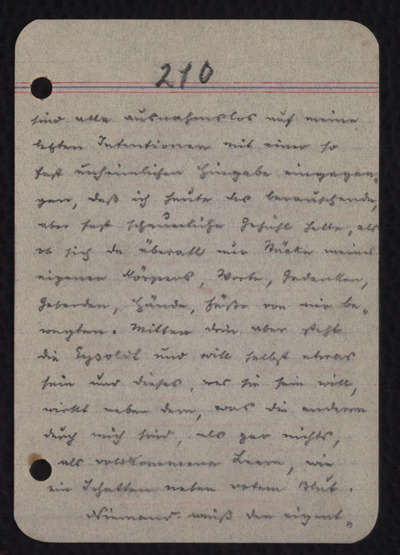 210
sind alle ausnahmslos auf meine
letzten Intentionen mit einer so
fast unheimlichen Hingabe eingegan-
gen, daß ich heute das berauschende,
aber fast schauerliche Gefühl hatte, als
ob sich da überall nur Stücke meines
eigenen Körpers, Worte, Gedanken,
Geberden, Hände, Füße von mir be-
wegten. Mitten drin aber steht
die Eysoldt und will selbst etwas
sein und dieses, was sie sein will,
wirkt neben dem, was die anderen
durch mich sind, als gar nichts,
als vollkommene Leere, wie
ein Schatten neben rotem Blut.
Niemand weiß den eigent-